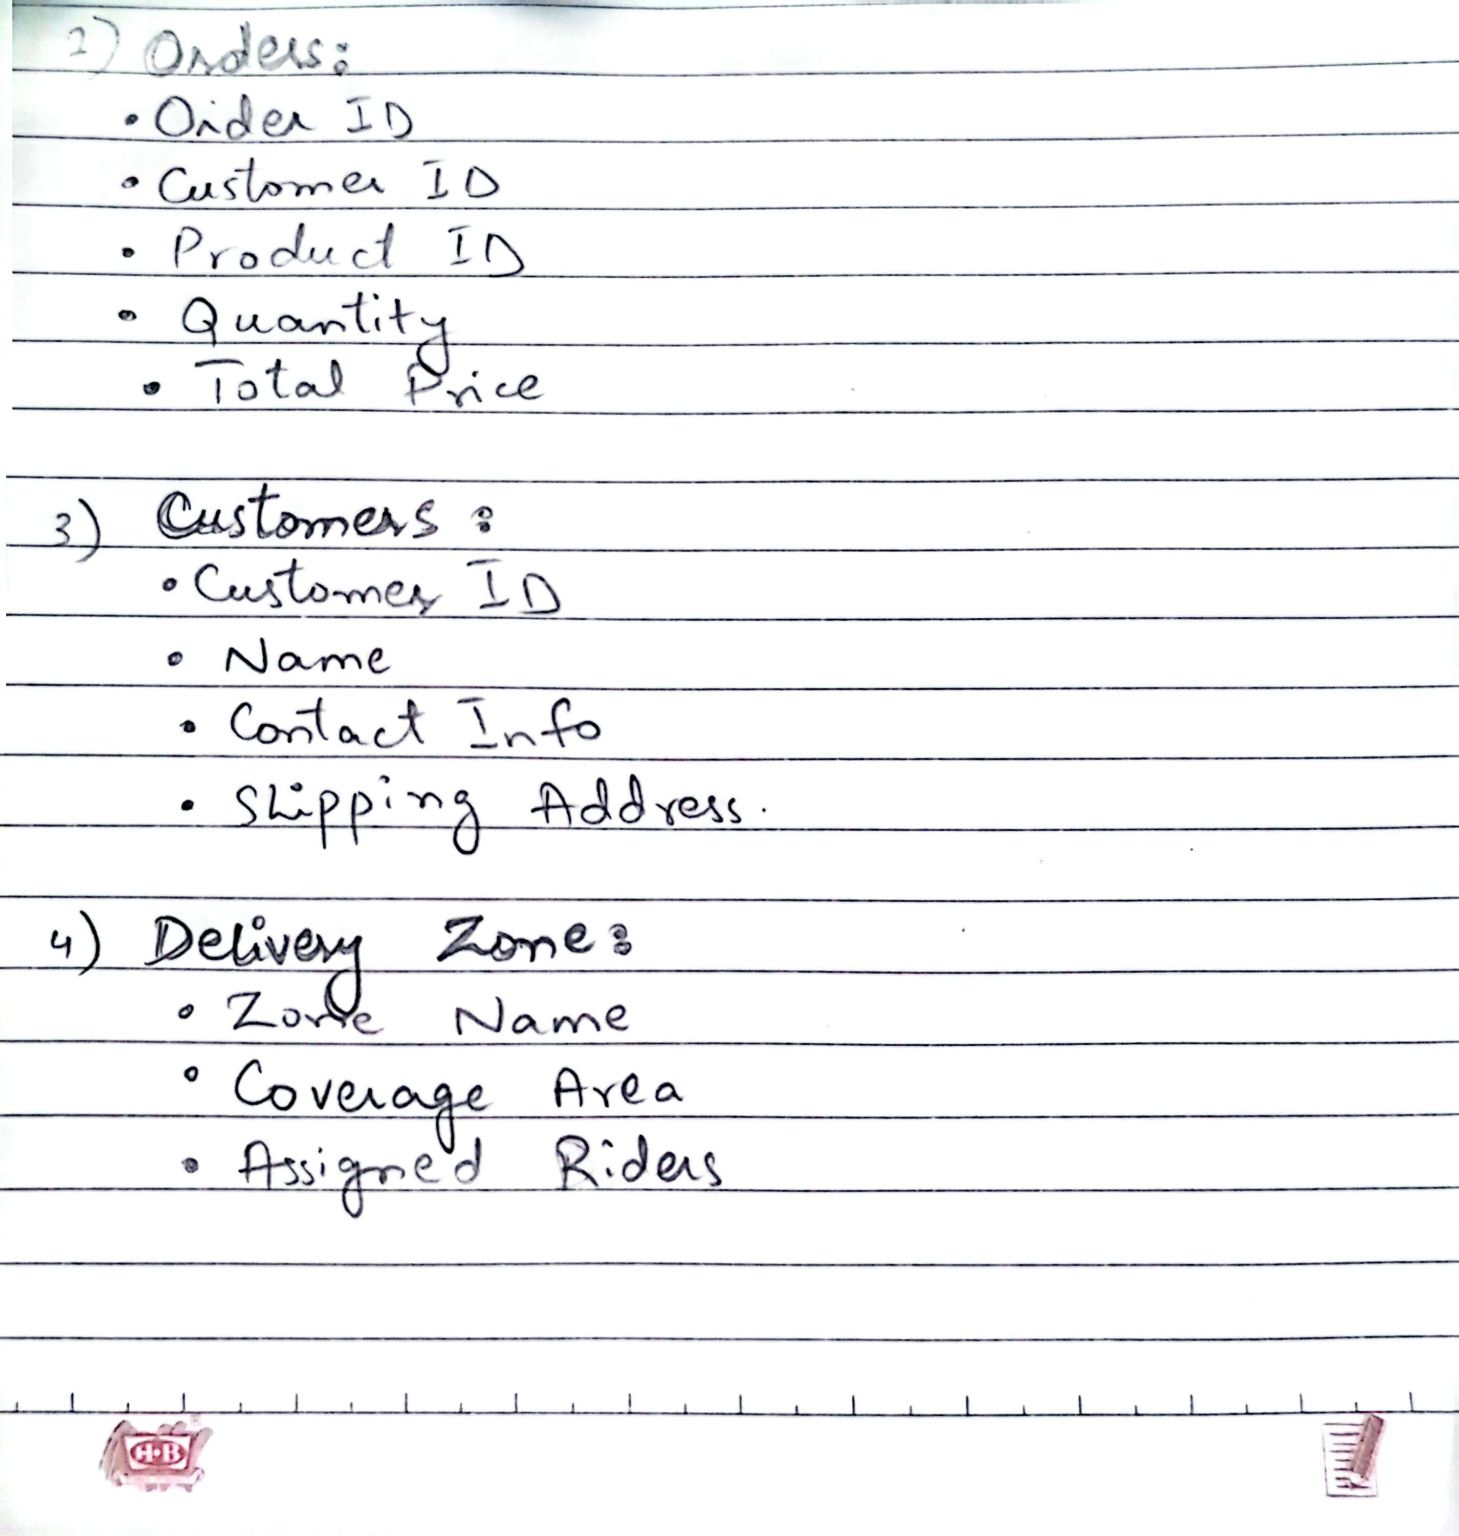 2) Orders:
• Order ID
• Customer ID
• Product ID
• Quantity
• Total Price
3) Customers:
• Customer ID
• Name
• Contact Info
• Shipping Address.
4) Delivery Zone:
• Zone Name
• Coverage Area
• Assigned Riders
H·B